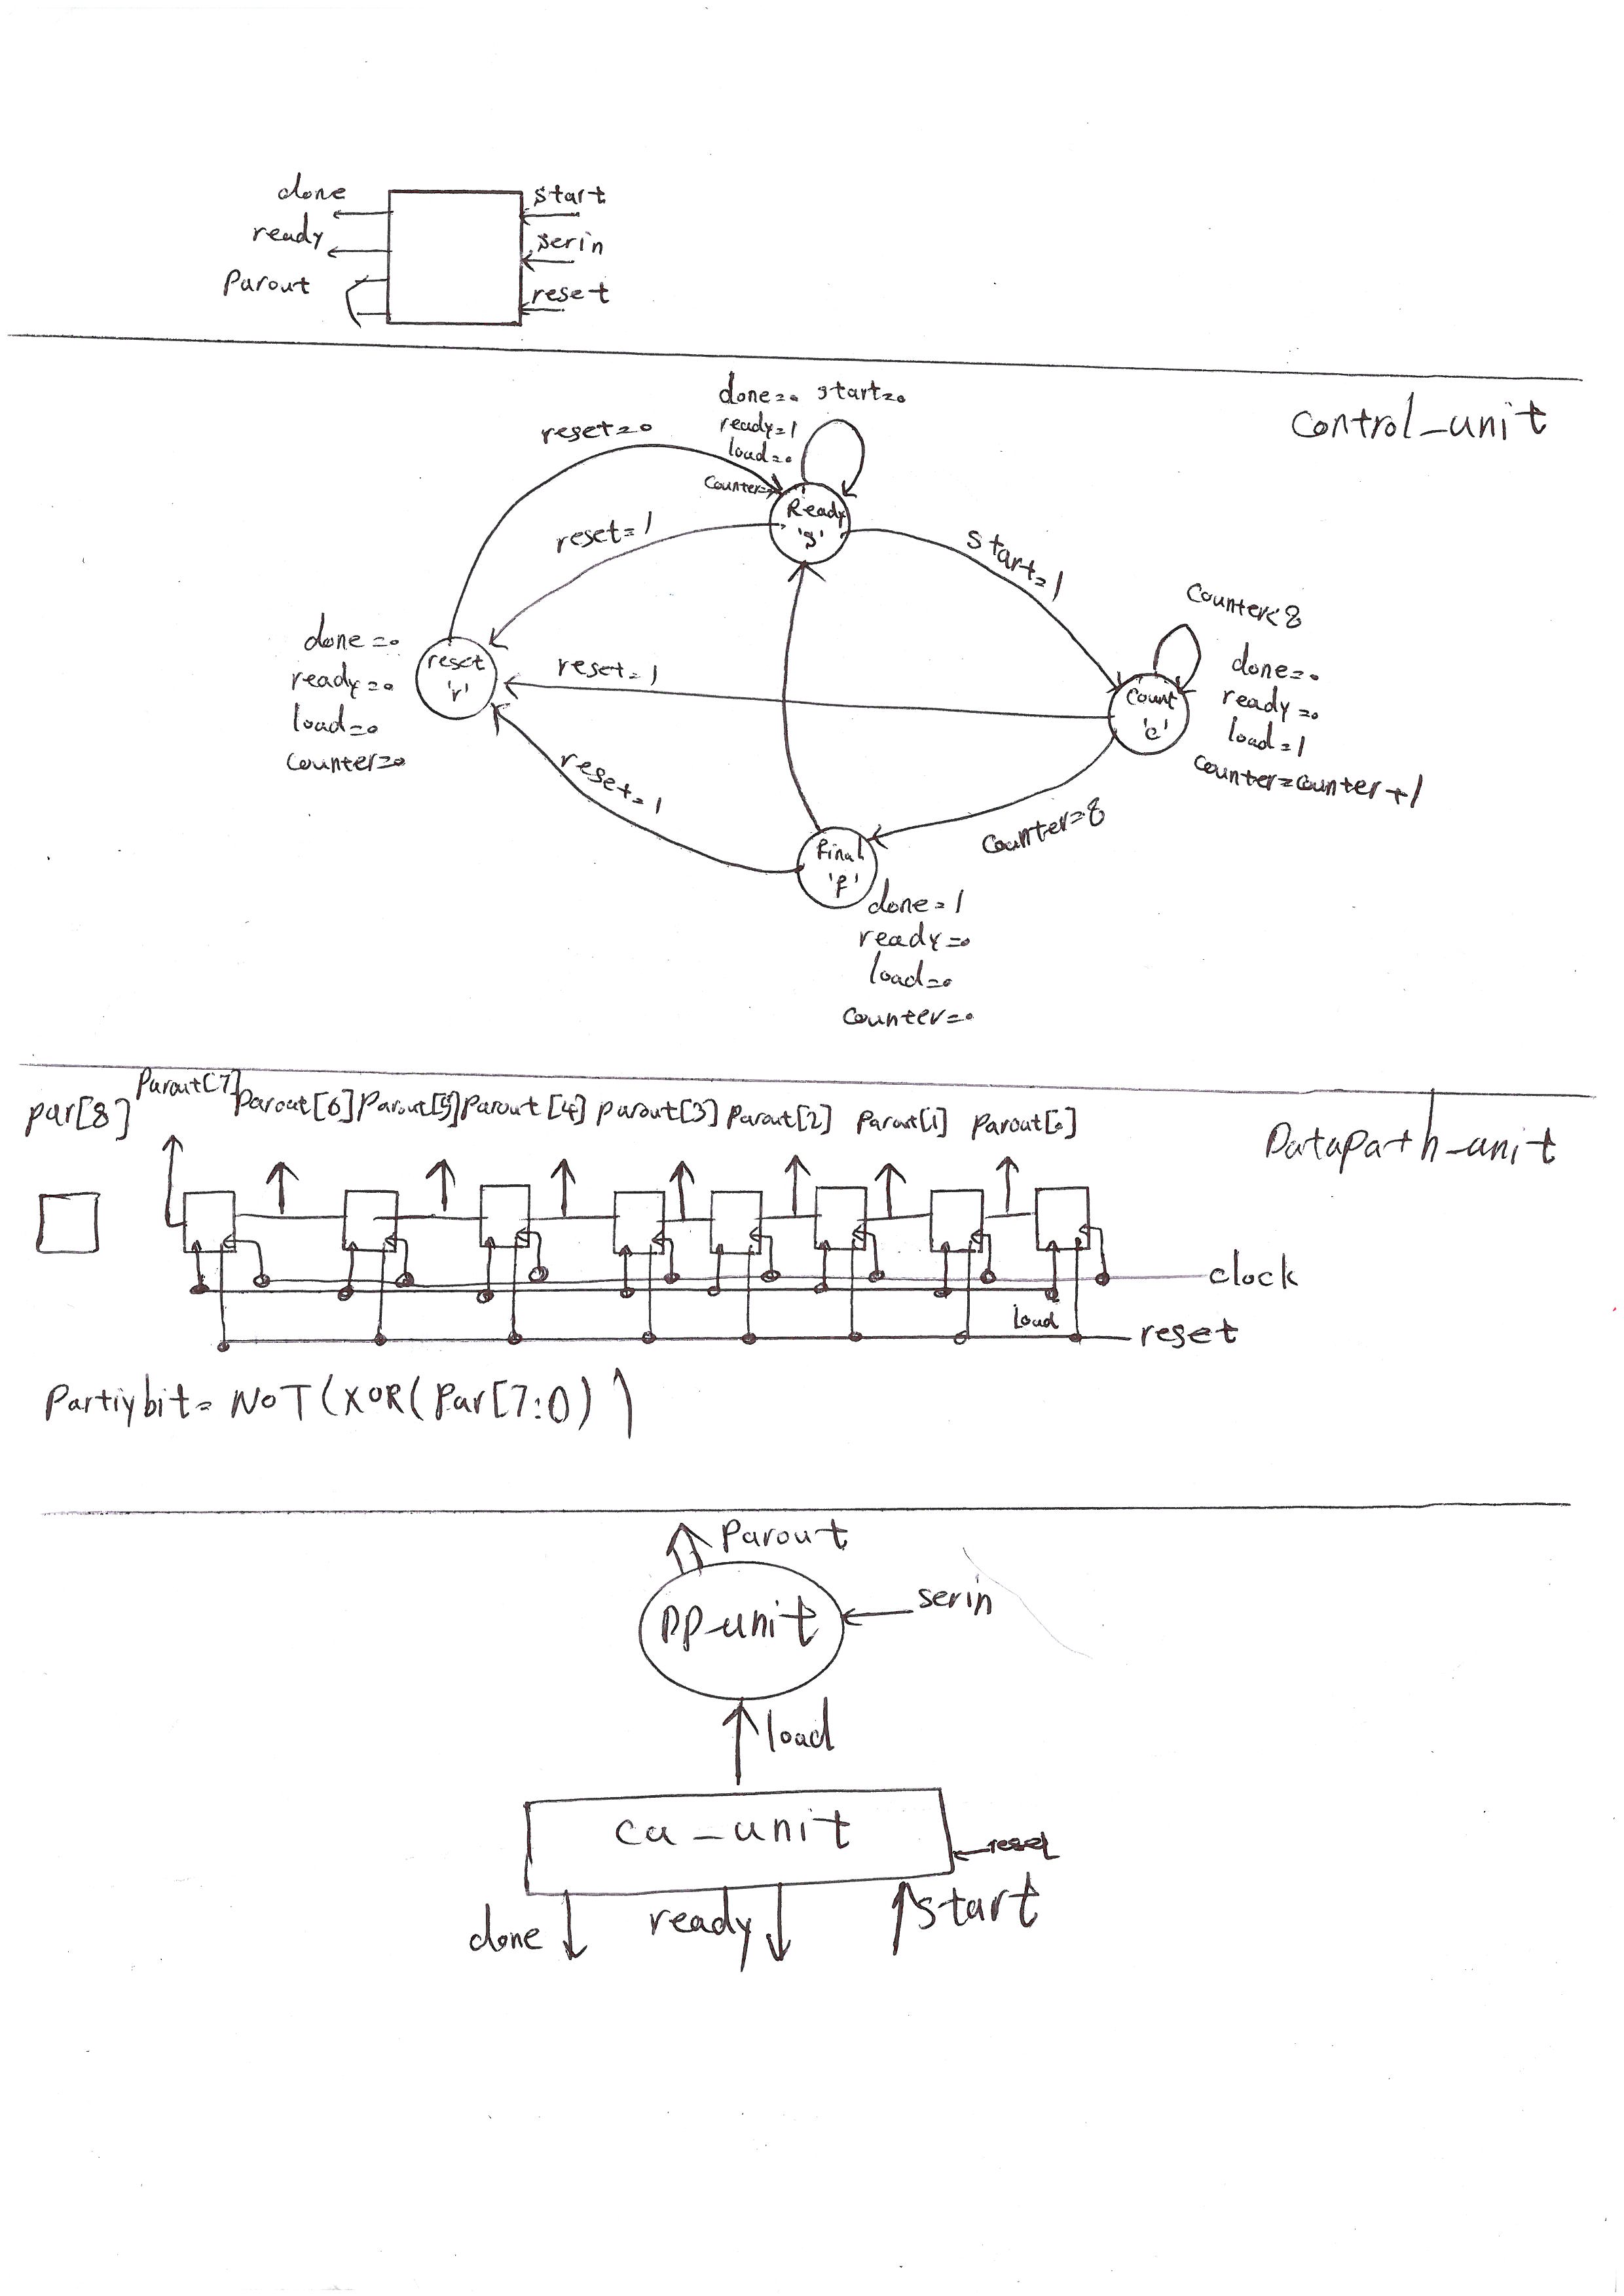 done
start
ready
serin
Parout
reset
control_unit
done=0 start=0
ready=1
load=0
counter=0
reset=0
Ready
's'
reset=1
start=1
counter<8
done=0
ready=0
load=1
counter=counter+1
count
'c'
reset=1
done=0
ready=0
load=0
counter=0
reset
'r'
reset=1
counter=8
final
'f'
done=1
ready=0
load=0
counter=0
par[8]
Parout[7]
Parout[6]
Parout[5]
Parout[4]
Parout[3]
Parout[2]
Parout[1]
Parout[0]
DataPath_unit
clock
load
reset
Partiybit= NOT(XOR(Par[7:0))
Parout
DP_unit
serin
load
cu_unit
reset
done
ready
start